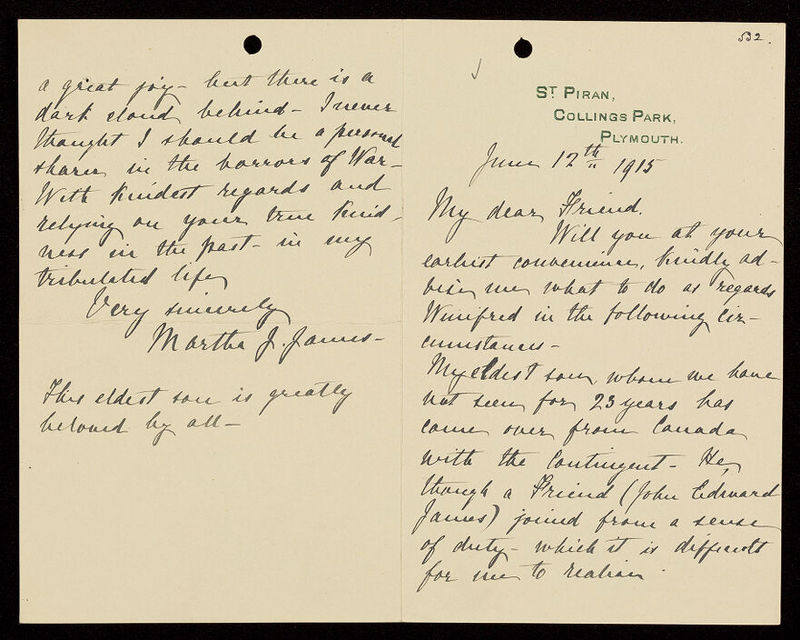 a great joy - but there is a
dark cloud behind - I never
thought I should be a personal
sharer in the horrors of War -
With kindest regards and
relying on your true kind-
ness in the past - in my
tribulated life
Very sincerely
Martha J. James -
This eldest son is greatly
beloved by all -
532.
ST PIRAN,
COLLINGS PARK,
PLYMOUTH.
June 12th 1915
My dear Friend.
Will you at your
earliest convenience, kindly ad-
vise me what to do as regards
Winifred in the following cir-
cumstances -
My eldest son, whom we have
not seen for 23 years has
come over from Canada
with the Contingent - He,
though a Friend (John Edward
James) joined from a sense
of duty - which it is difficult
for me to realise.